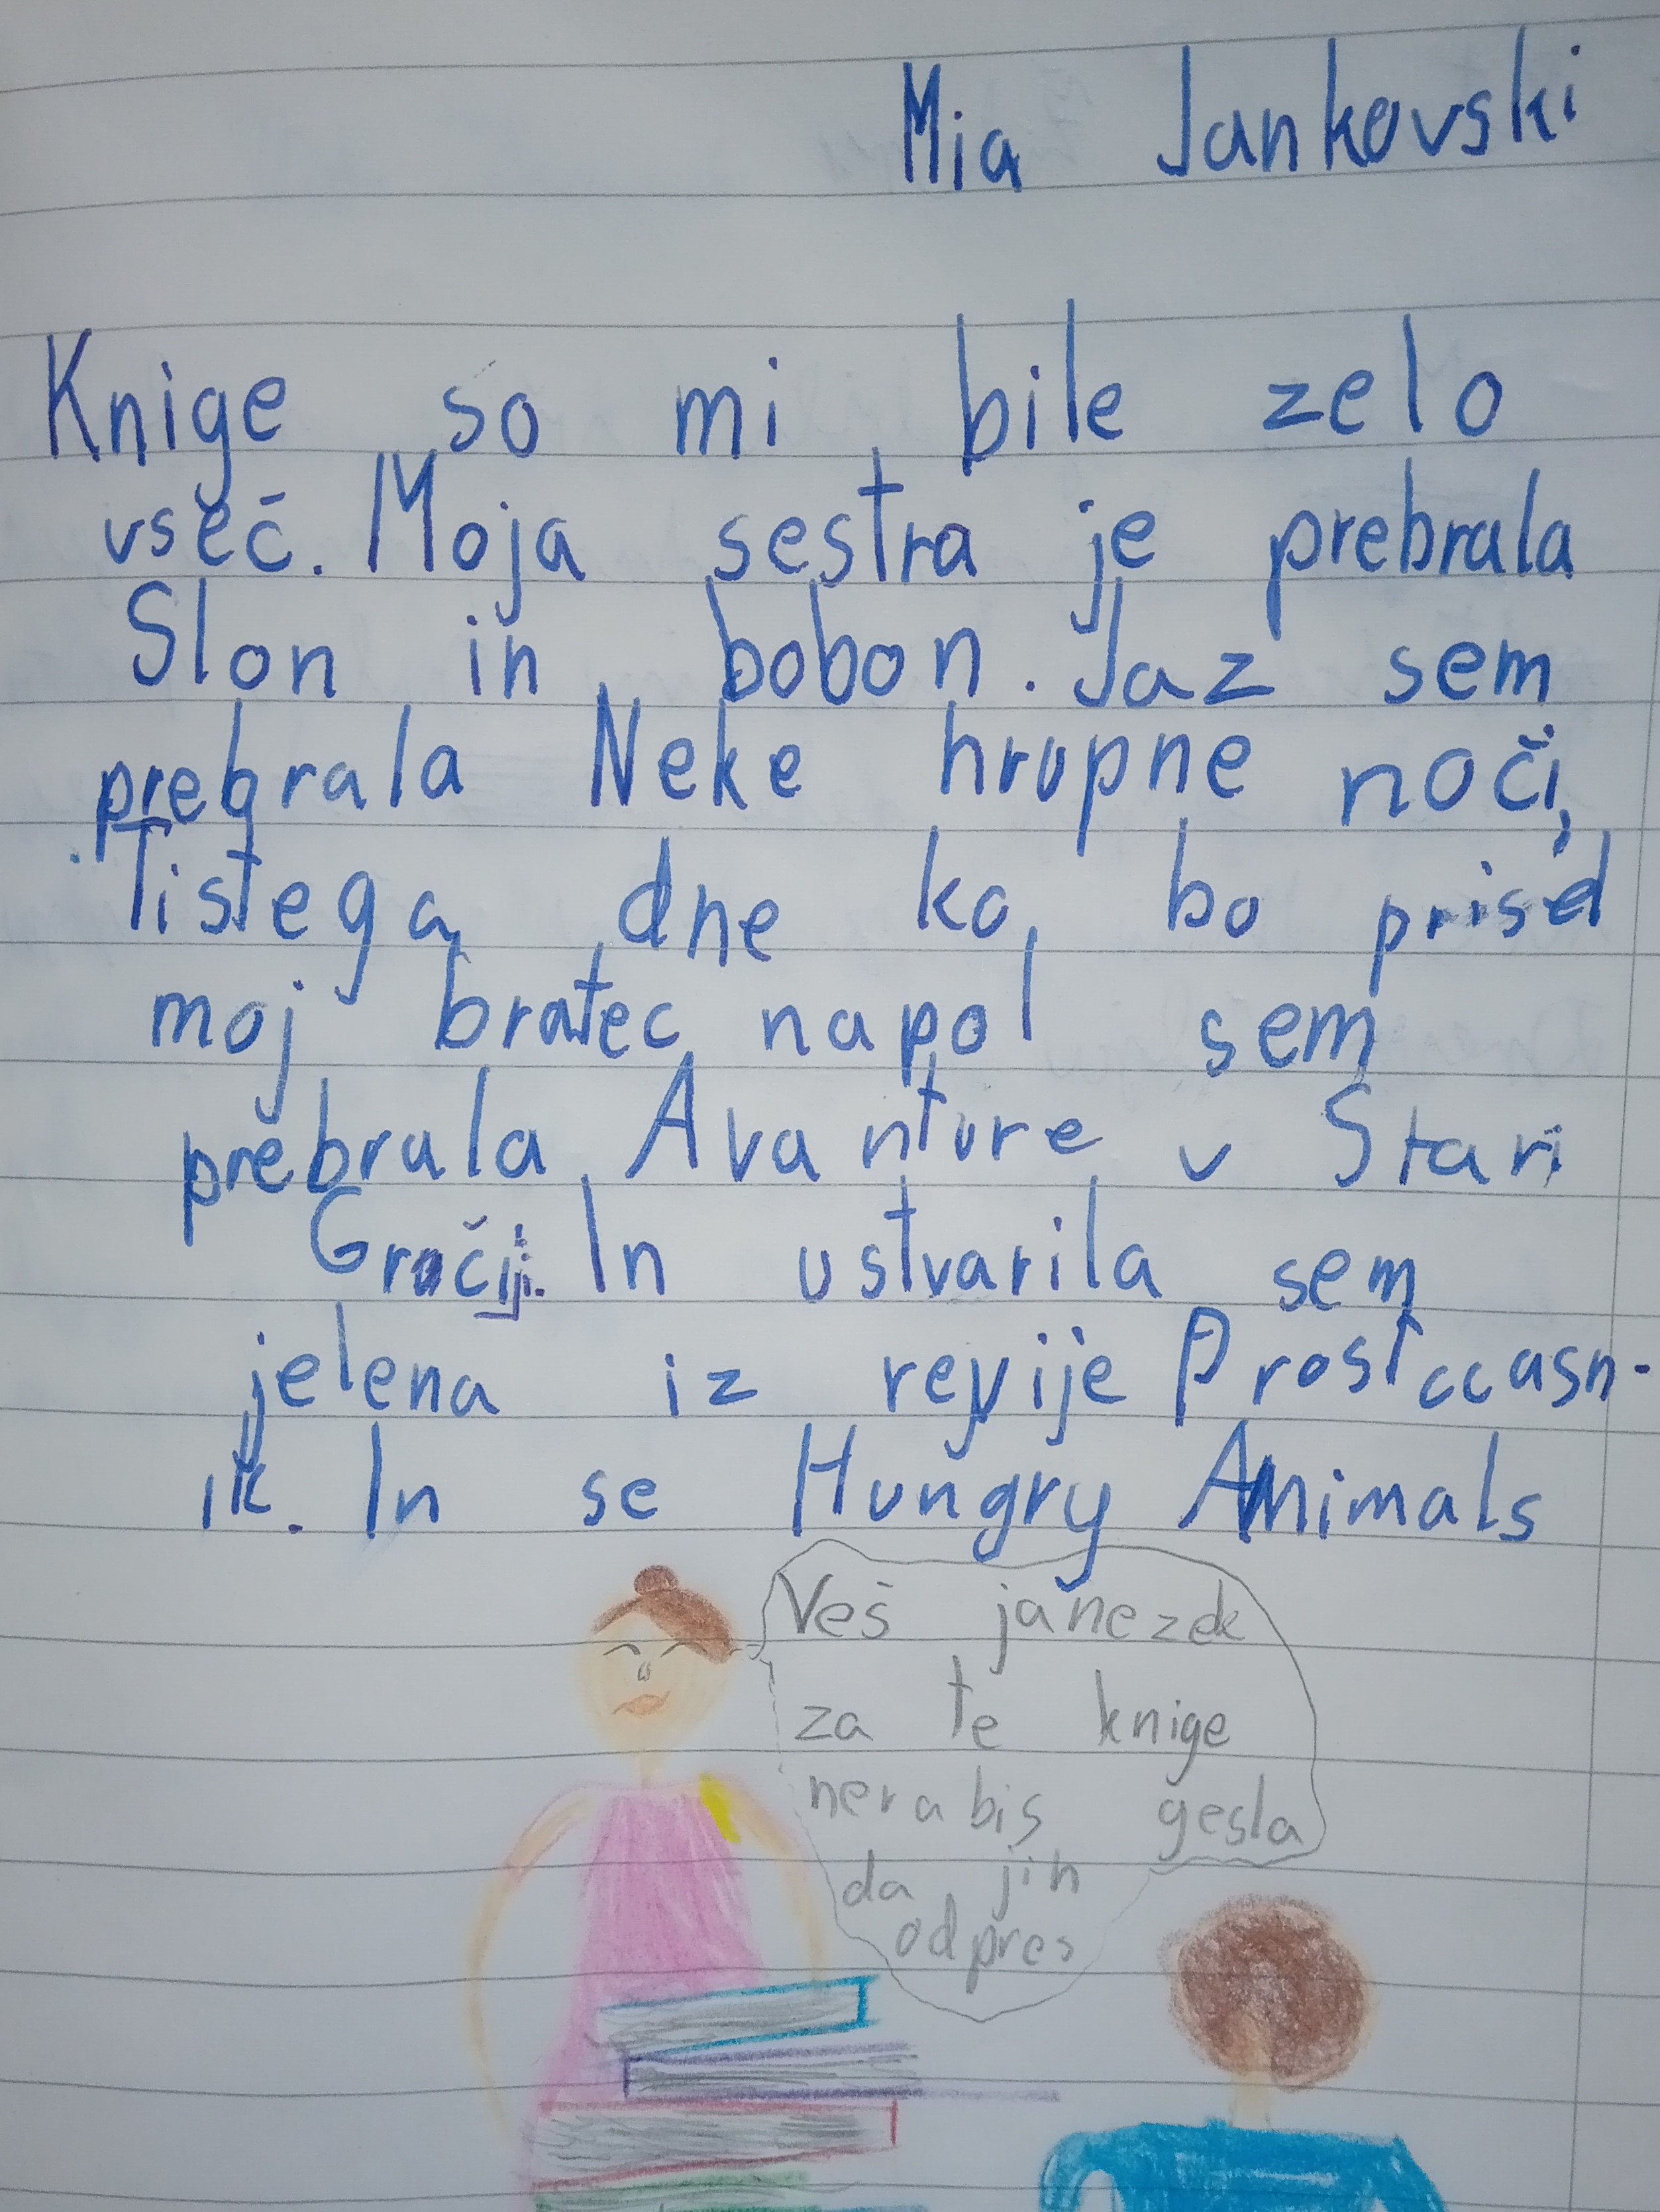 Mia Jankovski
Knige so mi bile zelo
vseč. Moja sestra je prebrala
Slon in bobon. Jaz sem
prebrala Neke hrupne noči,
Tistega dne ko bo prisel
moj bratec, napol sem
prebrala Avanture v Stari
Gračiji. In ustvarila sem
jelena iz revije Prostccasn-
ik. In se Hungry Animals
Veš janezek
za te knige
nerabis gesla
da jih
odpres